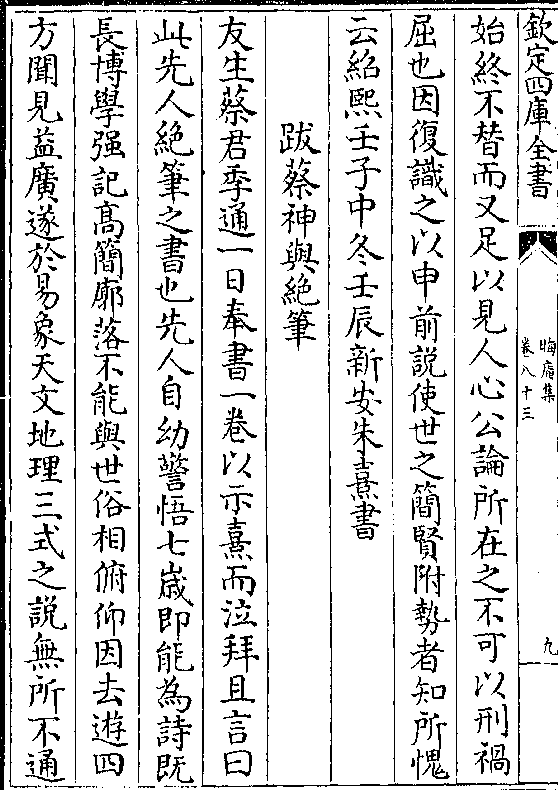 欽定四庫全書
晦庵集
卷八十三
九
始終不替而又足以見人心公論所在之不可以刑禍
屈也因復識之以申前説使世之簡賢附勢者知所愧
云紹熙壬子中冬壬辰新安朱熹書
跋蔡神與絶筆
友生蔡君季通一日奉書一卷以示熹而泣拜且言曰
此先人絶筆之書也先人自幼警悟七嵗即能為詩既
長博學强記髙簡廓落不能與世俗相俯仰因去遊四
方聞見益廣遂於易象天文地理三式之説無所不通